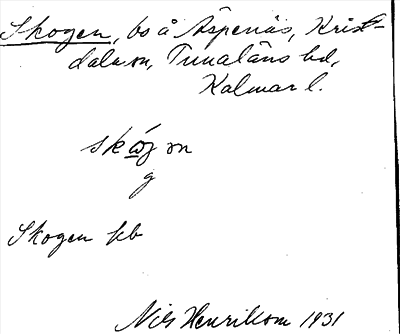 Skogen, bo å Äspenäs, Krist-
dala sn, Tunaläns hd,
Kalmar l.
skǫ́g m
g
Skogen kb
Nils Henrikson 1931